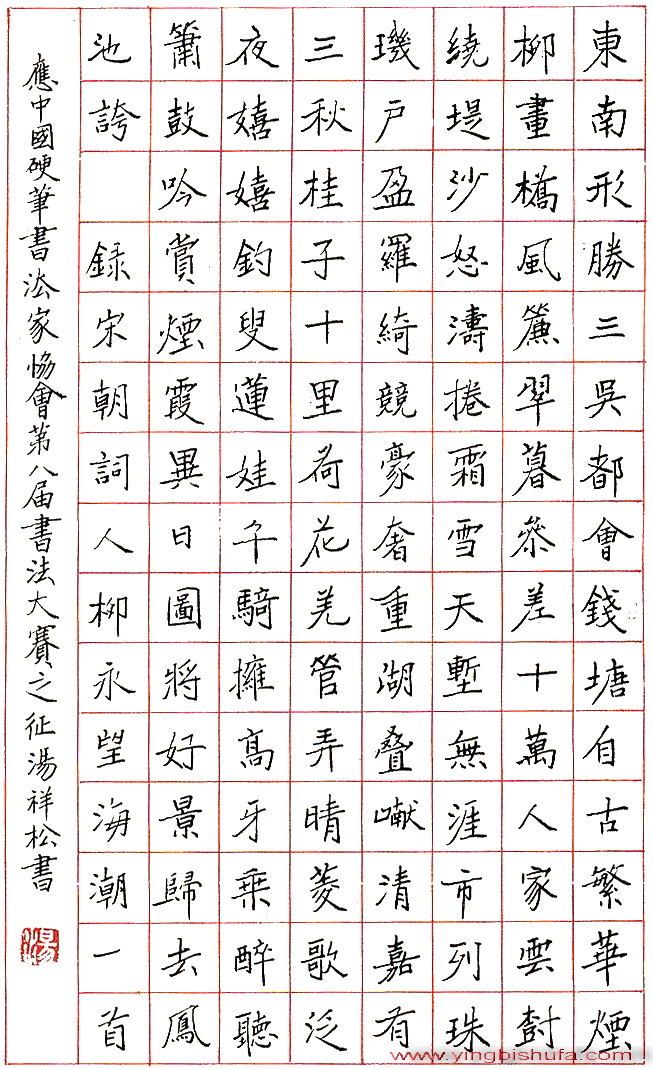 東南形勝三吳都會錢塘自古繁華煙
柳畫橋風簾翠暮叅差十萬人家雲樹
繞堤沙怒濤捲霜雪天塹無涯市列珠
璣戶盈羅綺競豪奢重湖叠巘清嘉有
三秋桂子十里荷花羌管弄晴菱歌泛
夜嬉嬉釣叟蓮娃千騎擁高牙乘醉聽
簫鼓吟賞煙霞異日圖將好景歸去鳳
池誇 録宋朝詞人柳永望海潮一首
應中國硬筆書法家協會第八届書法大賽之征湯祥松書
www.yingbishufa.com